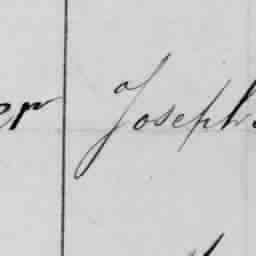 er Joseph